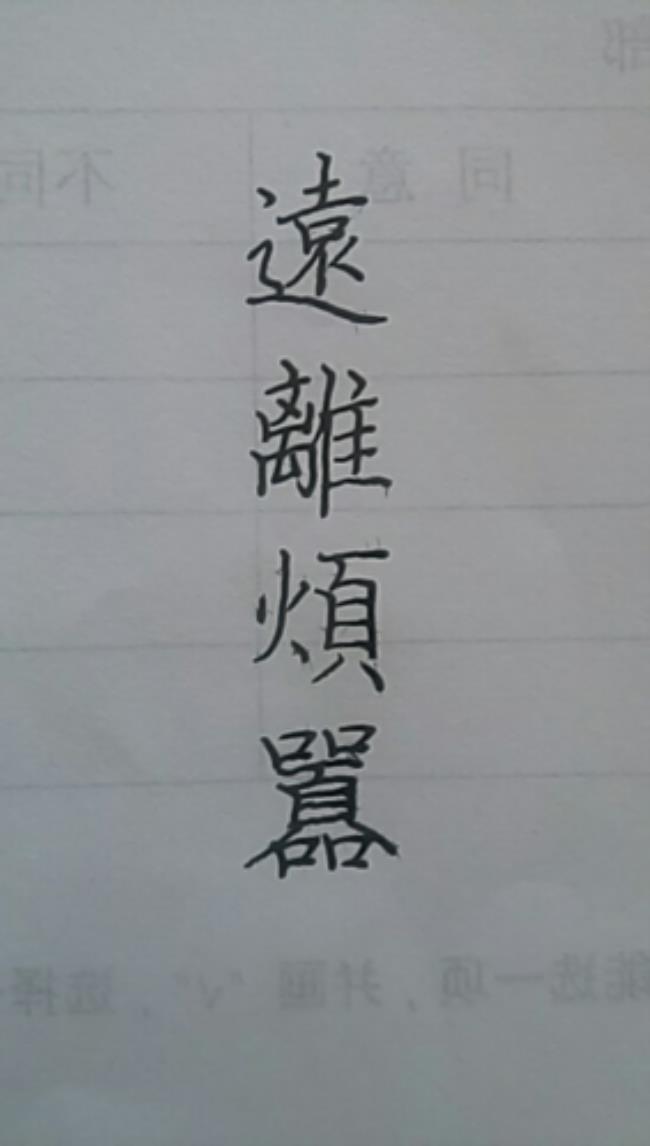 遠離煩囂